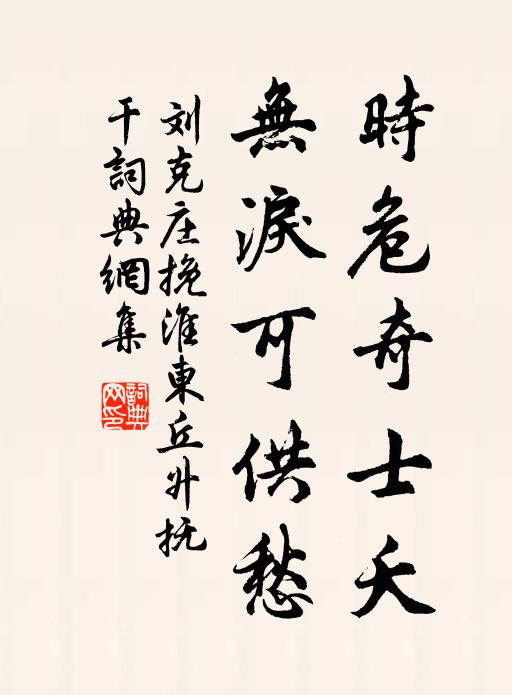 時危奇士夭
無淚可供愁
刘克庄挽淮東丘升抚
于詞典網集
詞典
网印